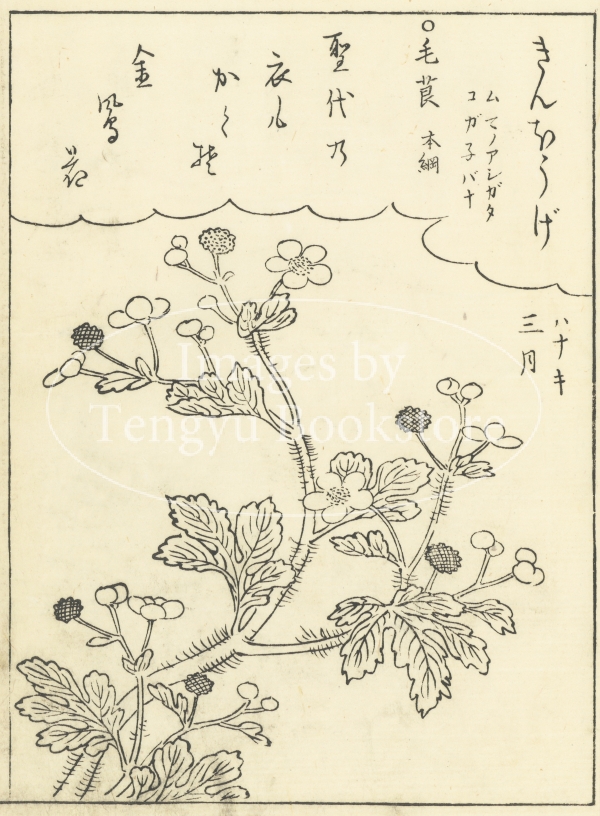 きんほうげ
ムマノアシガタ
コガ子バナ
○毛茛 本綱
聖代乃
衣尓
かく
金
鳳
花
ハナキ
三月
Images by
Tengyu Bookstore